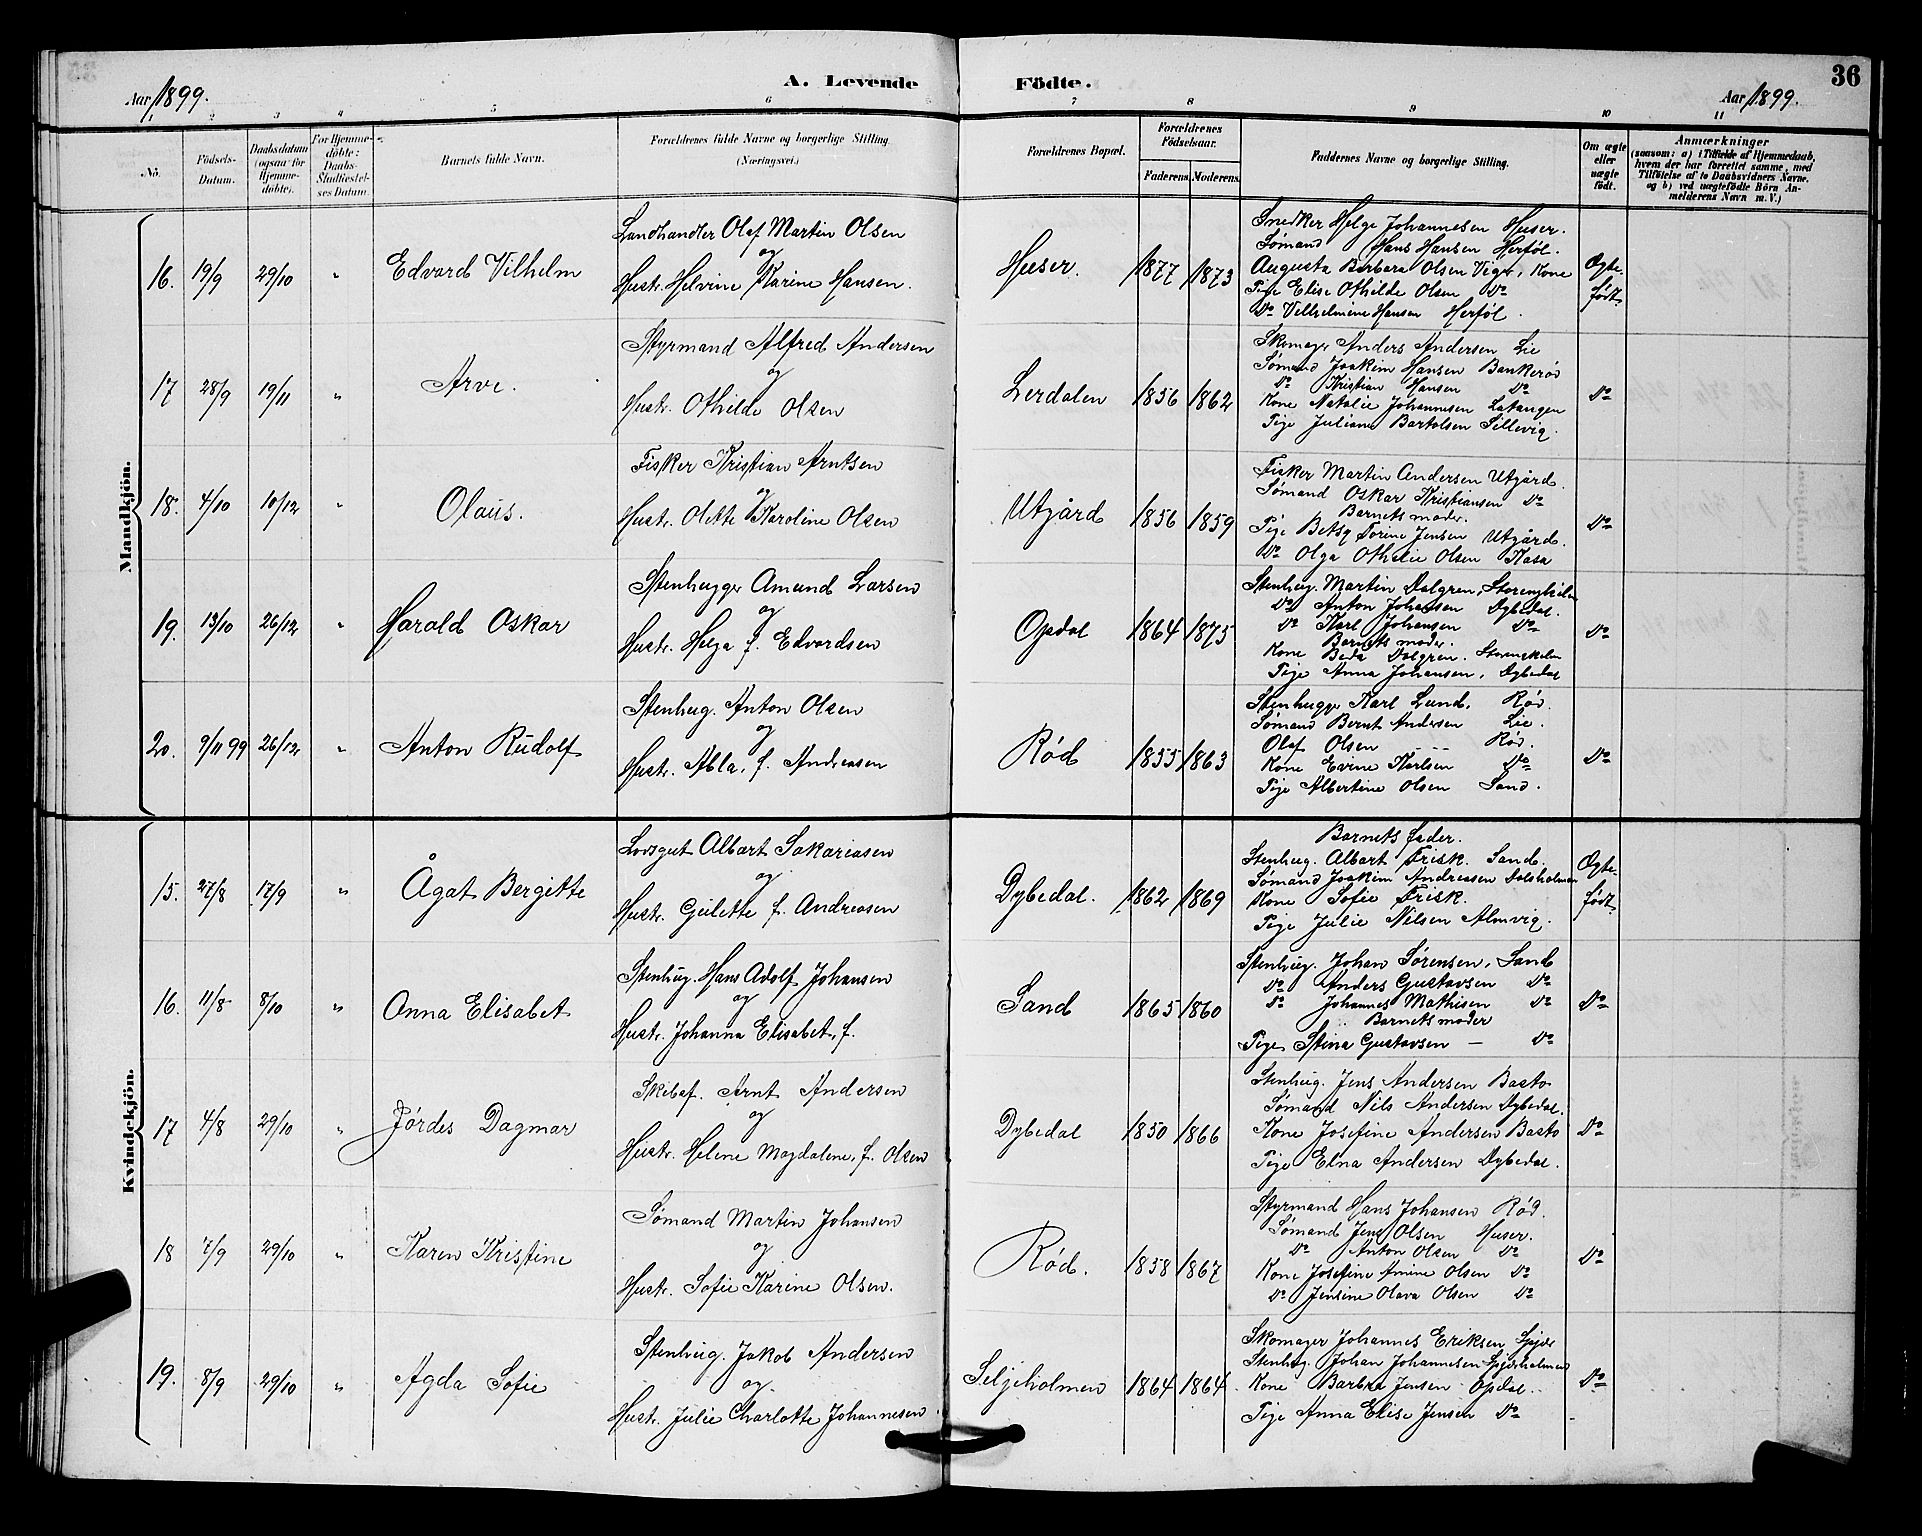 36
A. Levende Födte.
Aar 1899.
Aar 1899.
1 2 3 4 5 6 7 8 9 10 11
No.
Födsels-Datum.
Daabsdatum (ogsaa for Hjemme-döbte).
For Hjemme-döbte: Daabs-Stadfæstel-ses Datum.
Barnets fulde Navn.
Forældrenes fulde Navne og borgerlige Stilling (Næringsvei.)
Forældrenes Bopæl.
Forældrenes Födselsaar.
Faderens. Moderens.
Faddernes Navne og borgerlige Stilling.
Om ægte eller uægte födt.
Anmærkninger
(saasom: a) i Tilfælde af Hjemmedaab,
hvem der har forrettet samme, med
Tilföielse af to Daabsvidners Navne,
og b) ved uægtefödte Börn An-
melderens Navn m.V.)
Mandkjön.
16. 19/9 29/10 " Edvard Vilhelm
Landhandler Olaf Martin Olsen
og
Hustr. Helvine Karine Hansen.
Huser. 1877 1873
Snedker Helge Johannesen Huser.
Sømand Hans Hansen Herføl.
Augusta Barbara Olsen Viger, Kone
Pige Elise Othilde Olsen Do
Do Vilhelmine Hansen Herføl.
Ægte-født.
17 28/9 19/11 " Arve.
Styrmand Alfred Andersen
og
Hustr. Othilde Olsen
Lerdalen 1856 1862
Skomager Anders Andersen Lie
Sømand Joakim Hansen Bankerød
Do Kristian Hansen Do
Kone Natalie Johannesen Latangen
Pige Juliane Bartolsen Sillevig.
Do
18. 4/10 10/12 " Olaus.
Fisker Kristian Arntsen
og
Hustr. Olette Karoline Olsen
Utgård 1856 1859
Fisker Martin Andersen Utgård.
Sømand Oskar Kristiansen Do
Barnets moder.
Pige Betsy Torine Jensen Utgård.
Do Olga Othilie Olsen Kasa
Do
19. 13/10 26/12 " Harald Oskar
Stenhugger Amund Larsen
og
Hustr. Helga f. Edvardsen
Opdal 1864 1875
Stenhug. Martin Dalgren,
Do Anton Johansen Dybedal.
Do Karl Johansen Do
Barnets moder.
Kone Beda Dalgren.
Pige Anna Johansen, Dybedal
Do
20. 9/11 99 26/12 " Anton Rudolf
Stenhug. Anton Olsen
og
Hustr. Abla, f. Andreasen
Rød 1855 1863
Stenhugger Karl Lund, Rød.
Sømand Bernt Andersen Lie.
Olaf Olsen Rød.
Kone Evine Karlsen Do
Pige Albertine Olsen Sand.
Do
Kvindekjön.
15. 27/8 17/9 " Ågat Bergitte
Lodsgut Albart Sakariasen
og
Hustr. Gulette f. Andreasen
Dybedal. 1862 1869
Barnets fader.
Stenhug. Albart Frisk. Sand.
Sømand Joakim Andreasen
Kone Sofie Frisk.
Pige Julie Nilsen Almvig.
Ægte-født.
16. 11/8 8/10 " Anna Elisabet
Stenhug. Hans Adolf Johansen
og
Hustr. Johanna Elisabet, f.
Sand 1865 1860
Stenhug. Johan Sørensen, Sand
Do Anders Gustavsen Do
Do Johannes Mathisen Do
Barnets moder
Pige Stina Gustavsen — Do
Do
17 4/8 29/10 " Jørdes Dagmar
Skibsf. Arnt Andersen
og
Hustr. Helene Magdalene, f. Olsen
Dybedal 1850 1866
Stenhug. Jens Andersen Basto
Sømand Nils Andersen Dybedal.
Kone Josefine Andersen Basto
Pige Elna Andersen Dybedal.
Do
18 7/9 29/10 " Karen Kristine
Sømand Martin Johansen
og
Hustr. Sofie Karine Olsen.
Rød. 1858 1867
Styrmand Hans Johansen Rød.
Sømand Jens Olsen Huser.
Do Anton Olsen Do
Kone Josefine Amine Olsen Do
Do Jensine Olava Olsen Do
Do
19. 8/9 29/10 " Agda Sofie
Stenhug. Jakob Andersen
og
Hustr. Julie Charlotte Johannesen
Seljeholmen 1864 1864
Skomager Johannes Eriksen
Stenhug. Johan Johannesen
Kone Barbra Jensen Opdal.
Pige Anna Elise Jensen Do
Do